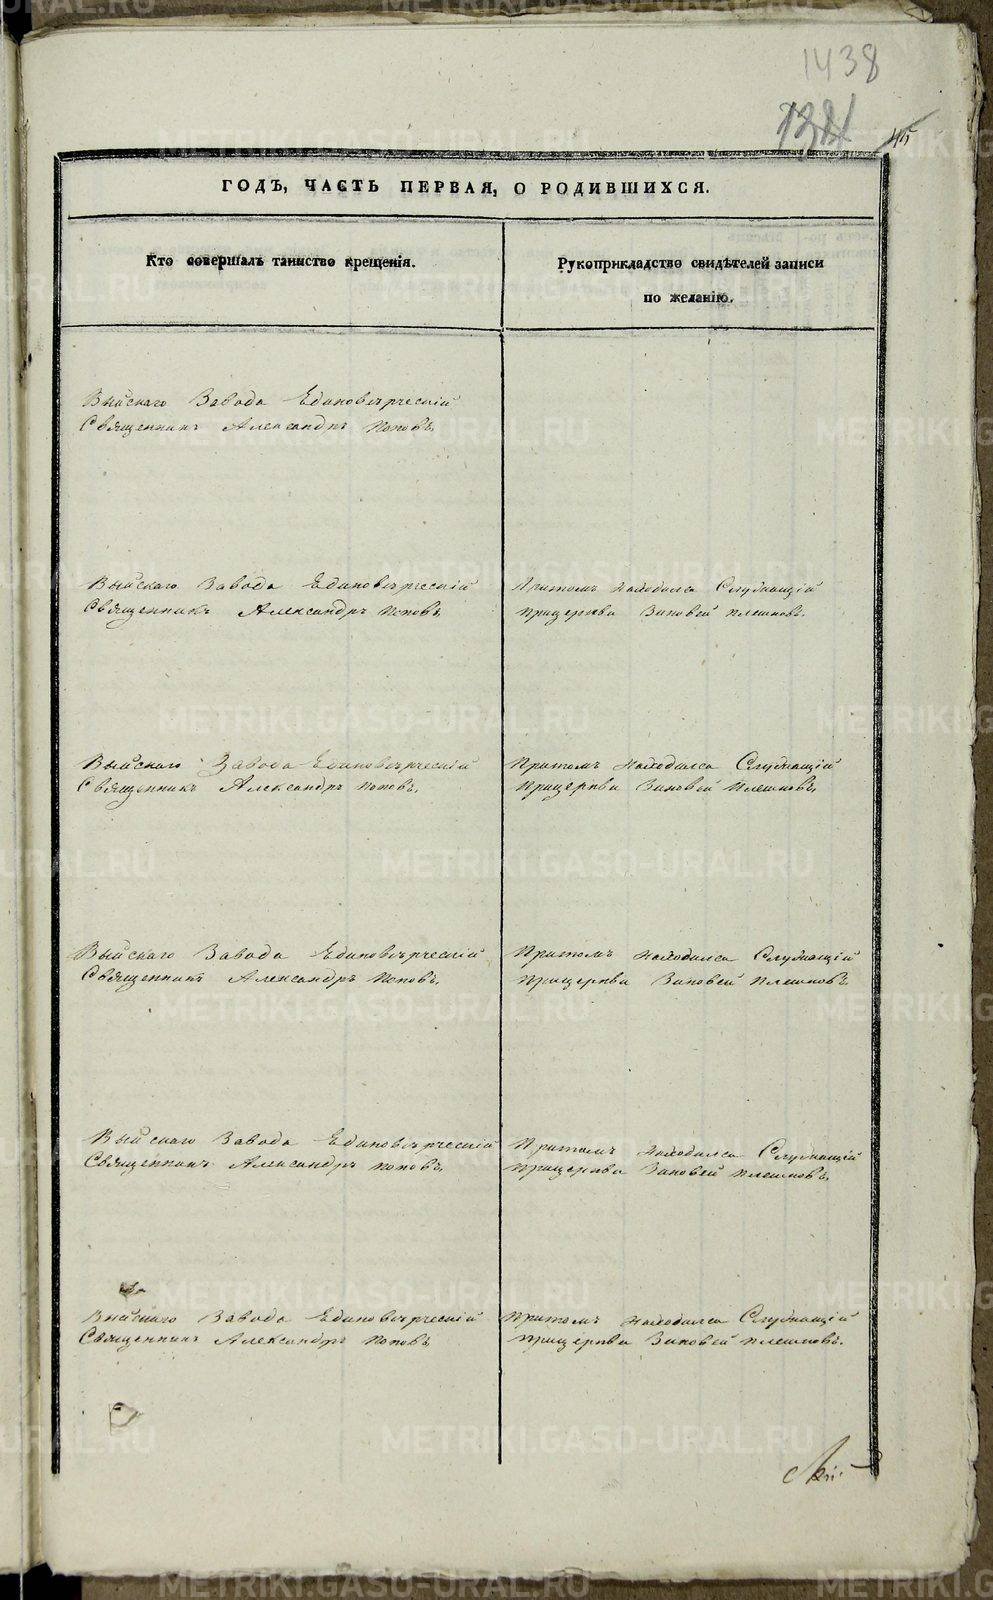 1438
134
45
ГОДЪ, ЧАСТЬ ПЕРВАЯ, О РОДИВШИХСЯ.
Кто совершалъ таинство крещенія.
Рукоприкладство свидѣтелей записи
по желанію.
Выйскаго Завода Единовѣрческій
Священникъ Александръ Поповъ,
Выйскаго Завода Единовѣрческій
Священникъ Александръ Поповъ,
Притомъ находился Служащій
прицерква Зиновей Плешковъ.
Выйскаго Завода Единовѣрческій
Священникъ Александръ Поповъ,
Притомъ находился Служащій
Прицерква Зиновей Плешковъ,
Выйскаго Завода Единовѣрческій
Священникъ Александръ Поповъ,
Притомъ находился Служащій
прицерква Зиновей Плешковъ
Выйскаго Завода Единовѣрческій
Священникъ Александръ Поповъ,
Притомъ находился Служащій
прицерква Зиновей Плешковъ,
Выйскаго Завода Единовѣрческій
Священникъ Александръ Поповъ
Притомъ находился Служащій
прицерква Зиновей Плешковъ.
METRIKI.GASO-URAL.RU